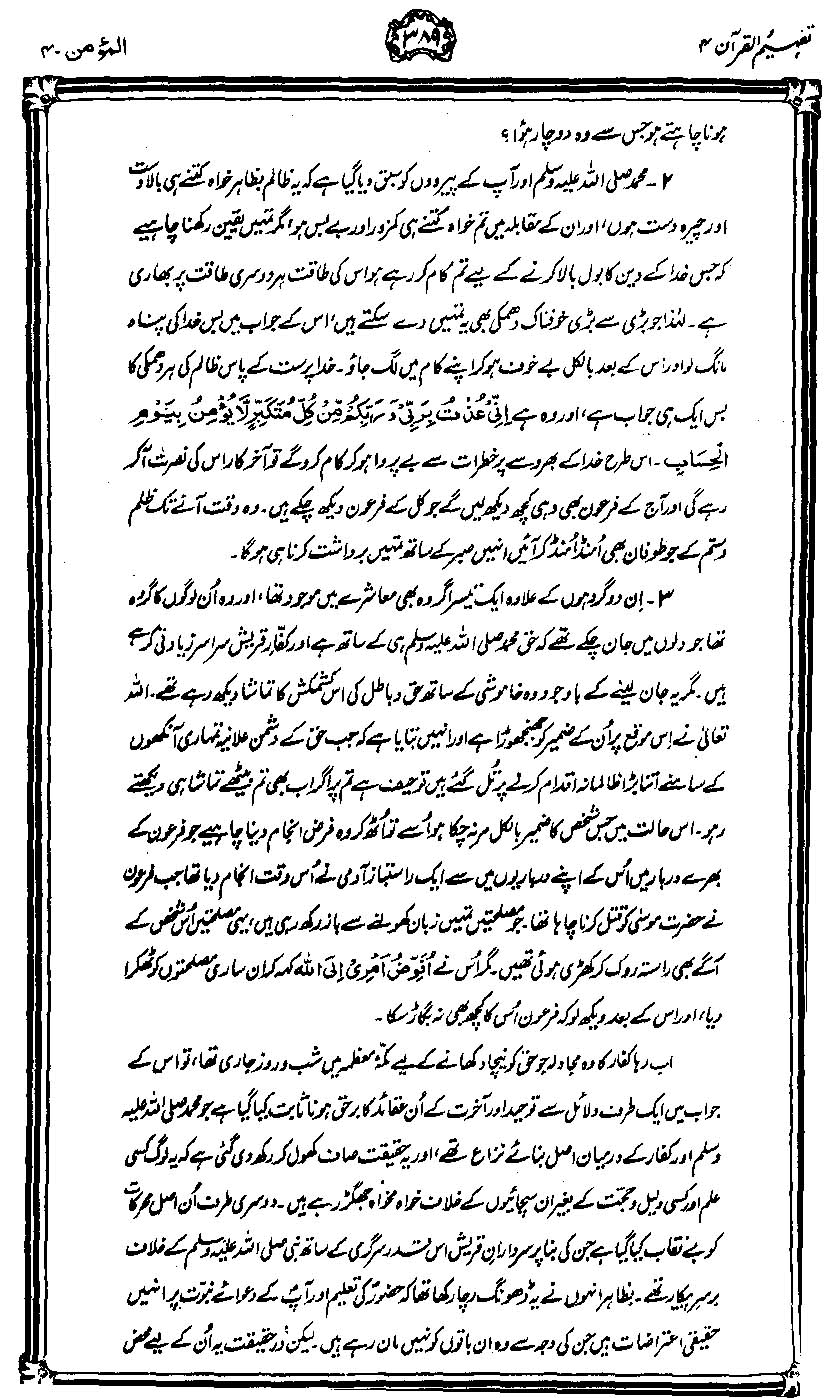 تفہیم القرآن ۴
۳۸۹
المؤمن ۴۰
ہونا چاہتے ہو جس سے وہ دوچار ہوا؟
۲- محمد صلی اللہ علیہ وسلم اور آپ کے پیروؤں کو سبق دیا گیا ہے کہ یہ ظالم بظاہر خواہ کتنے ہی بالادست
اور چیرہ دست ہوں، اور ان کے مقابلہ میں تم خواہ کتنے ہی کمزور اور بے بس ہو، مگر تمہیں یقین رکھنا چاہیے
کہ جس خدا کے دین کا بول بالا کرنے کے لیے تم کام کر رہے ہو اس کی طاقت ہر دوسری طاقت پر بھاری
ہے۔ لہٰذا جو بڑی سے بڑی خوفناک دھمکی بھی یہ تمہیں دے سکتے ہیں، اس کے جواب میں بس خدا کی پناہ
مانگ لو اور اس کے بعد بالکل بے خوف ہو کر اپنے کام میں لگ جاؤ۔ خدا پرست کے پاس ظالم کی ہر دھمکی کا
بس ایک ہی جواب ہے، اور وہ ہے اِنِّیْ عُذْتُ بِرَبِّیْ وَرَبِّکُمْ مِّنْ کُلِّ مُتَکَبِّرٍ لَّا یُؤْمِنُ بِیَوْمِ
الْحِسَابِ۔ اس طرح خدا کے بھروسے پر خطرات سے بے پروا ہو کر کام کرو گے تو آخر کار اس کی نصرت آ کر
رہے گی اور آج کے فرعون بھی وہی کچھ دیکھ لیں گے جو کل کے فرعون دیکھ چکے ہیں۔ وہ وقت آنے تک ظلم
وستم کے جو طوفان بھی اُمنڈ اُمنڈ کر آئیں انہیں صبر کے ساتھ تمہیں برداشت کرنا ہی ہوگا۔
۳- اِن دو گروہوں کے علاوہ ایک تیسرا گروہ بھی معاشرے میں موجود تھا، اور وہ اُن لوگوں کا گروہ
تھا جو دلوں میں جان چکے تھے کہ حق محمد صلی اللہ علیہ وسلم ہی کے ساتھ ہے اور کفارِ قریش سراسر زیادتی کر رہے
ہیں۔ مگر یہ جان لینے کے باوجود وہ خاموشی کے ساتھ حق و باطل کی اس کشمکش کا تماشا دیکھ رہے تھے۔ اللہ
تعالیٰ نے اِس موقع پر اُن کے ضمیر کو جھنجھوڑا ہے اور انہیں بتایا ہے کہ جب حق کے دشمن علانیہ تمہاری آنکھوں
کے سامنے اتنا بڑا ظالمانہ اقدام کرنے پر تُل گئے ہیں تو حیف ہے تم پر اگر اب بھی تم بیٹھے تماشا ہی دیکھتے
رہو۔ اس حالت میں جس شخص کا ضمیر بالکل مر نہ چکا ہو اُسے تو اُٹھ کر وہ فرض انجام دینا چاہیے جو فرعون کے
بھرے دربار میں اُس کے اپنے درباریوں میں سے ایک راستباز آدمی نے اُس وقت انجام دیا تھا جب فرعون
نے حضرت موسیٰ کو قتل کرنا چاہا تھا۔ جو مصلحتیں تمہیں زبان کھولنے سے باز رکھ رہی ہیں، یہی مصلحتیں اُس شخص کے
آگے بھی راستہ روک کر کھڑی ہوئی تھیں۔ مگر اُس نے اُفَوِّضُ اَمْرِیْ اِلَی اللہ کہہ کر ان ساری مصلحتوں کو ٹھکرا
دیا، اور اس کے بعد دیکھ لو کہ فرعون اُس کا کچھ بھی نہ بگاڑ سکا۔
اب رہا کفار کا وہ مجادلہ جو حق کو نیچا دکھانے کے لیے مکۂ معظمہ میں شب و روز جاری تھا، تو اس کے
جواب میں ایک طرف دلائل سے توحید اور آخرت کے اُن عقائد کا برحق ہونا ثابت کیا گیا ہے جو محمد صلی اللہ علیہ
وسلم اور کفار کے درمیان اصل بنائے نزاع تھے، اور یہ حقیقت صاف کھول کر رکھ دی گئی ہے کہ یہ لوگ کسی
علم اور کسی دلیل و حجت کے بغیر ان سچائیوں کے خلاف خواہ مخواہ جھگڑ رہے ہیں۔ دوسری طرف اُن اصل محرکات
کو بے نقاب کیا گیا ہے جن کی بنا پر سردارانِ قریش اس قدر سرگرمی کے ساتھ نبی صلی اللہ علیہ وسلم کے خلاف
برسرِ پیکار تھے۔ بظاہر انہوں نے یہ ڈھونگ رچا رکھا تھا کہ حضورؐ کی تعلیم اور آپؐ کے دعوائے نبوت پر انہیں
حقیقی اعتراضات ہیں جن کی وجہ سے وہ ان باتوں کو نہیں مان رہے ہیں۔ لیکن در حقیقت یہ اُن کے لیے محض